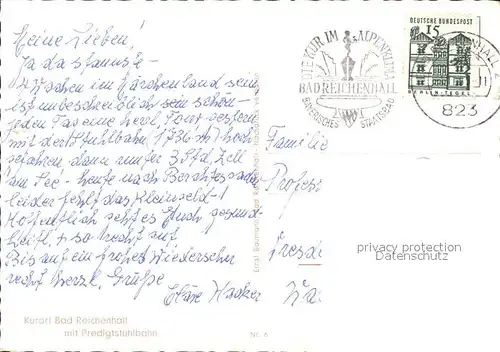 Meine Lieben!
Ja da staunste -
4 Wochen im Märchenland sein,
ist unbeschreiblich sein schön -
jeden Tag eine herrl. Tour gestern
mit der Stuhlbahn (1736 m) hoch
gefahren dann runter 3 Std, Zell
am See - heute nach Berchtesgaden
leider fehlt das Kleingeld -!
Hoffentlich geht es Euch gesund-
heitl. + so recht gut
Bis auf ein frohes Wiedersehn
recht herzl. Grüße
Kurort Bad Reichenhall
mit Predigtstuhlbahn
Nr. 6
DIE KUR IM ALPENKLIMA
BAD REICHENHALL
BAYERISCHES STAATSBAD
DEUTSCHE BUNDESPOST
15
BERLIN-TEGEL
823
Familie
Profess
Dresd
privacy protection
Datenschutz